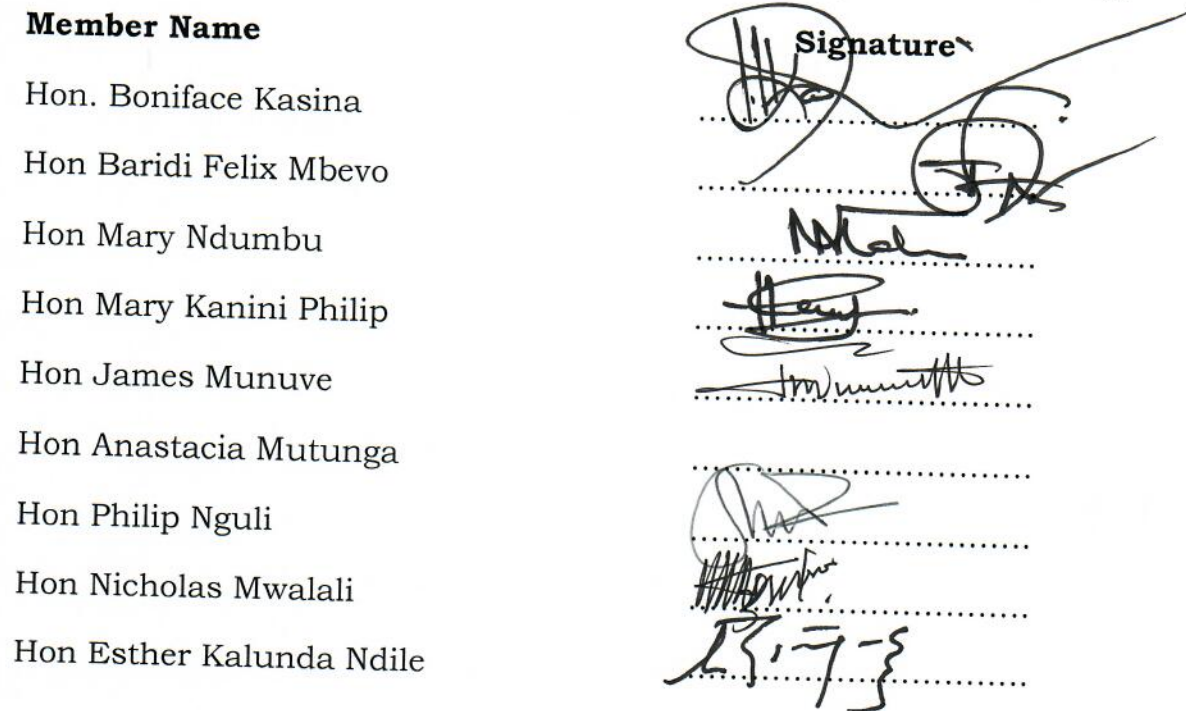 Member Name Signature
Hon. Boniface Kasina
Hon Baridi Felix Mbevo
Hon Mary Ndumbu
Hon Mary Kanini Philip
Hon James Munuve
Hon Anastacia Mutunga
Hon Philip Nguli
Hon Nicholas Mwalali
Hon Esther Kalunda Ndile